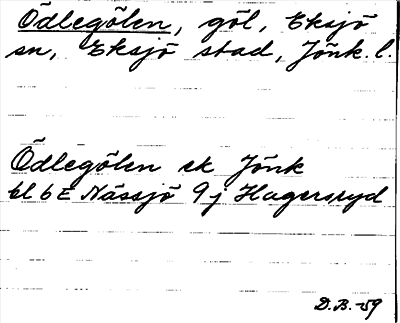 Ödlegölen, göl, Eksjö
sn, Eksjö stad, Jönk. l.
Ödlegölen ek Jönk
bl 6E Nässjö 9j Hagersryd
D.B. -59